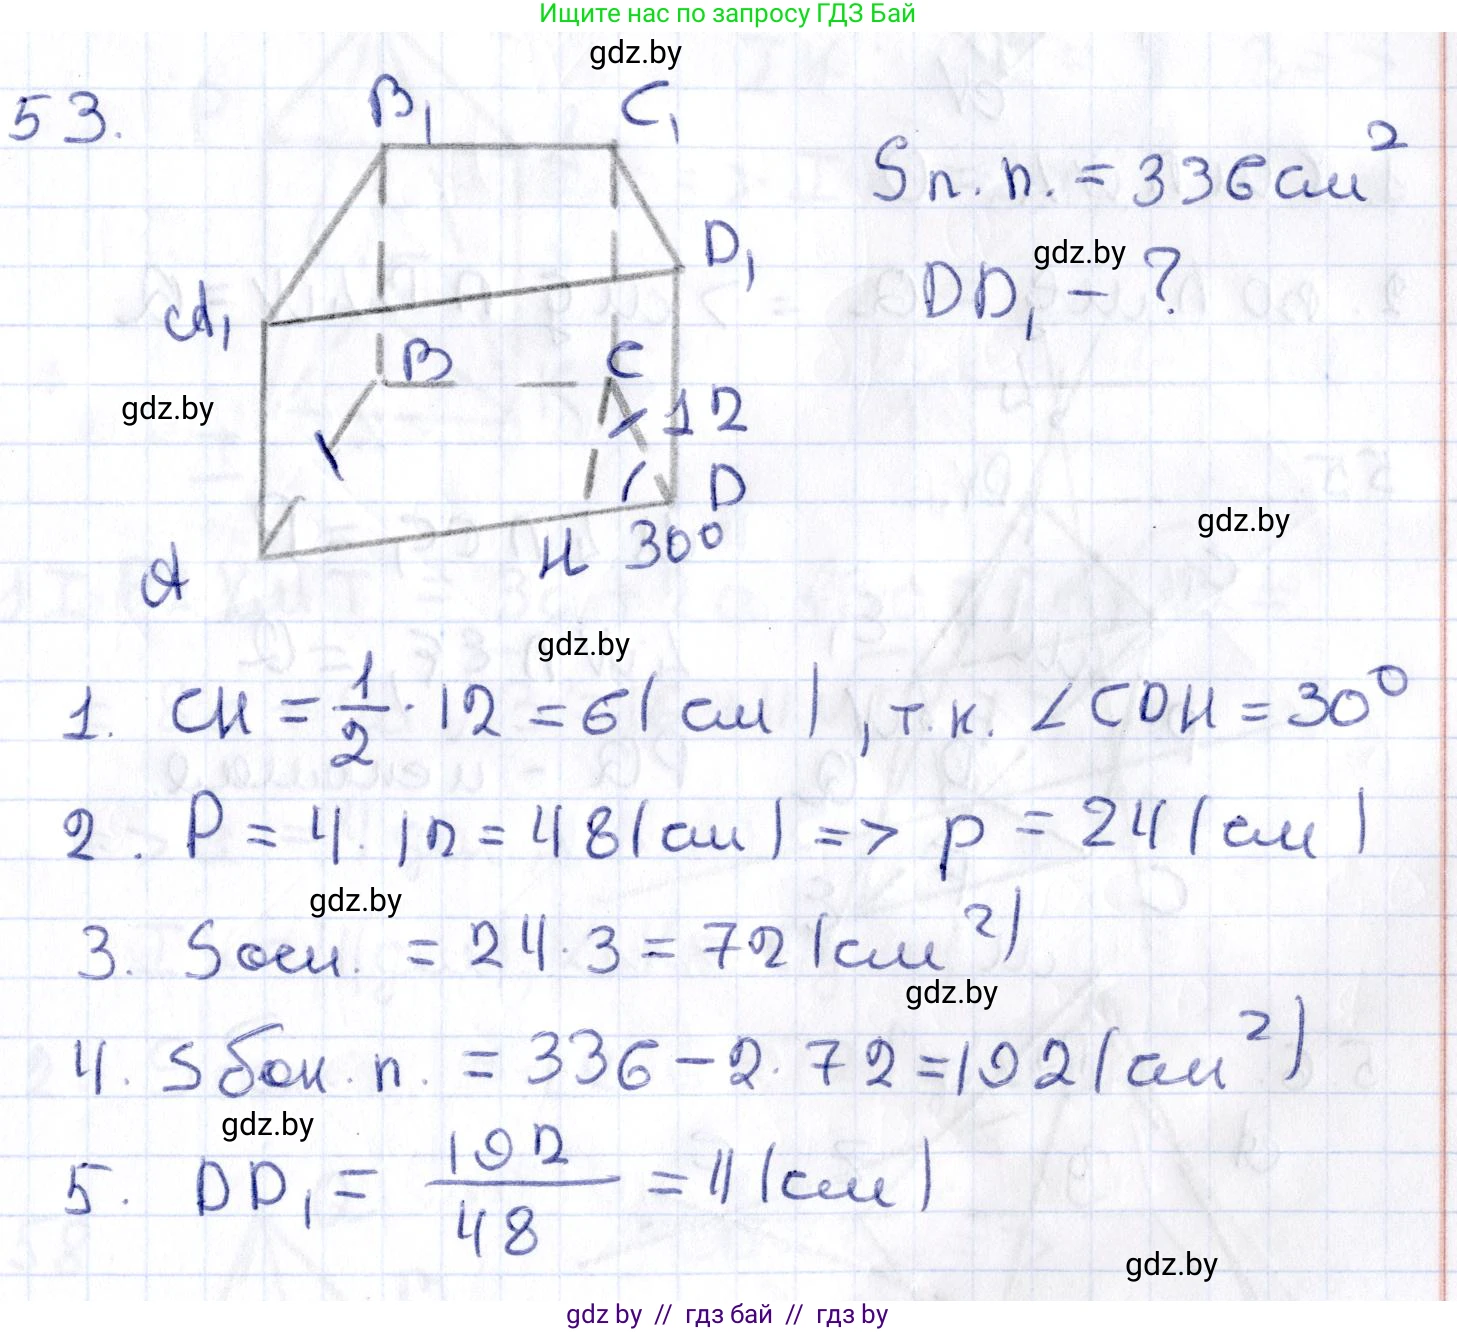 Ищите нас по запросу ГДЗ Бай
gdz.by
53.
B₁ C₁
Sп.п. = 336 см²
D₁
gdz.by
DD₁ - ?
A₁
B C
gdz.by
12
D
gdz.by
H 30°
A
gdz.by
1. CH = 1/2 · 12 = 6 (см), т.к. ∠CDH = 30°
2. P = 4 · 12 = 48 (см) => p = 24 (см)
gdz.by
3. Sосн. = 24 · 3 = 72 (см²)
gdz.by
4. Sбок.п. = 336 - 2 · 72 = 192 (см²)
gdz.by
5. DD₁ = 192/48 = 4 (см)
gdz.by
gdz by // гдз бай // гдз by